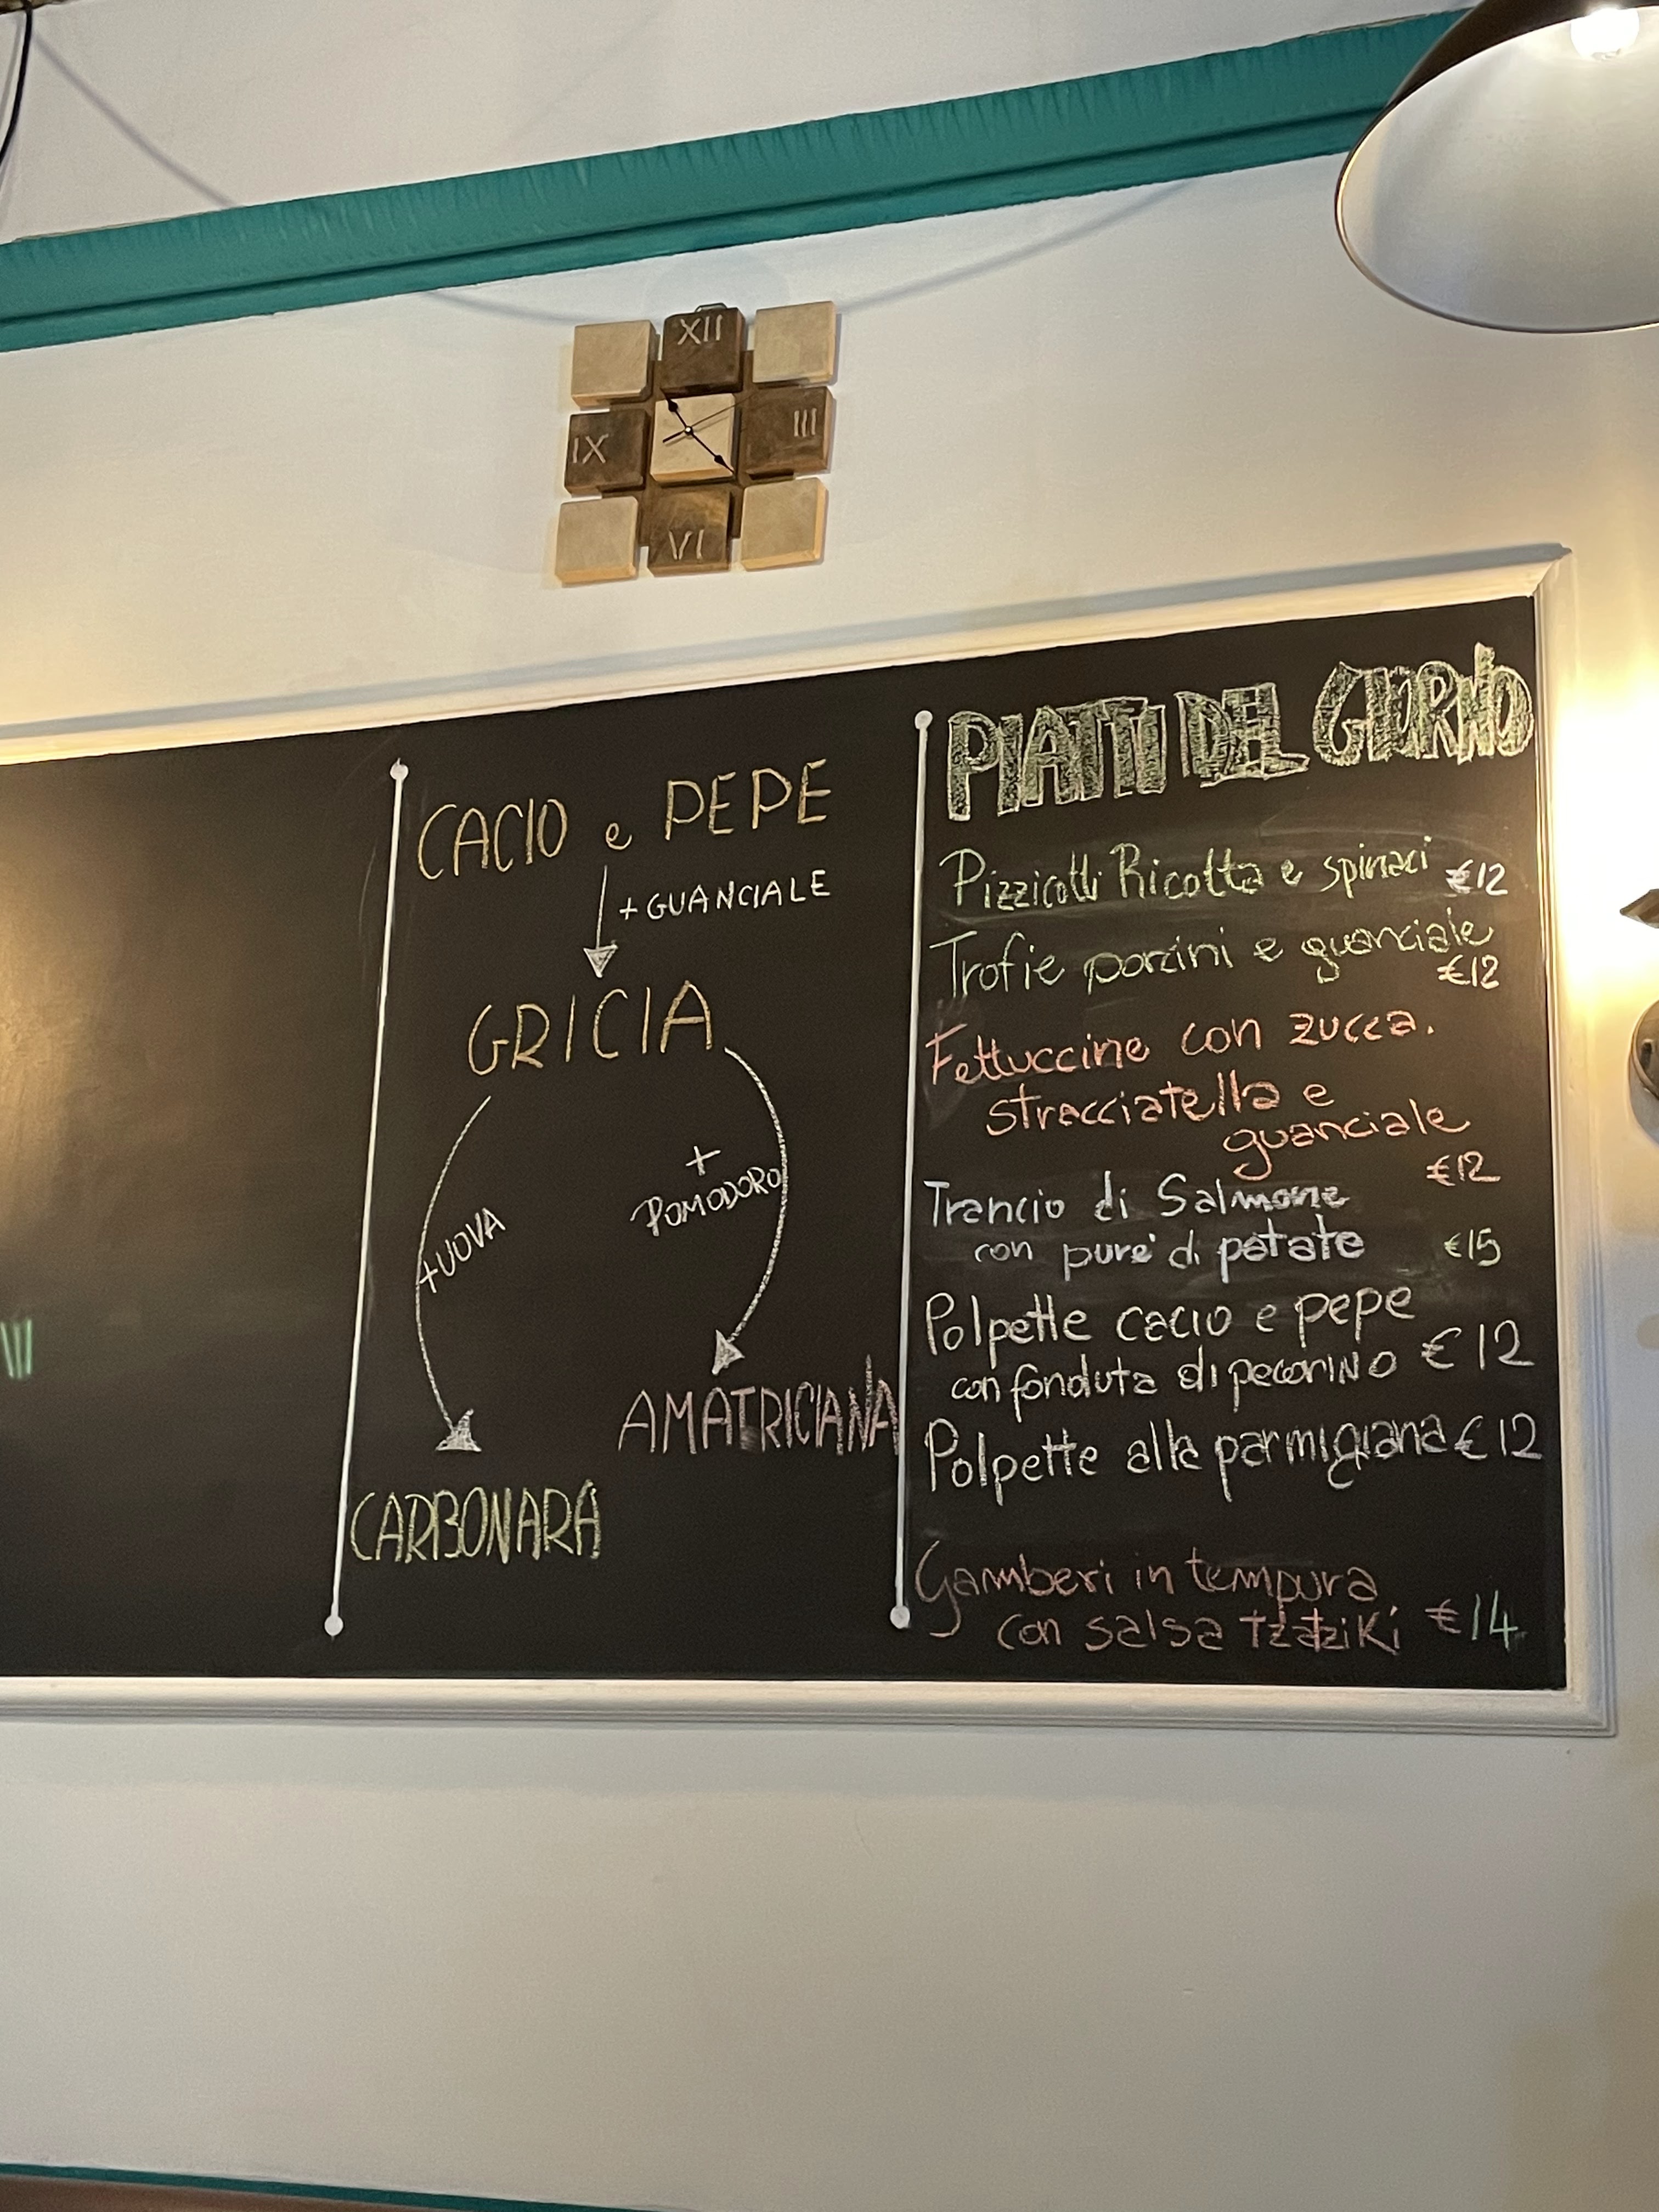 XII
IX
III
VI
CACIO e PEPE
+ GUANCIALE
GRICIA
+
POMODORO
+UOVA
AMATRICIANA
CARBONARA
PIATTI DEL GIORNO
Pizzicotti Ricotta e spinaci €12
Trofie porcini e guanciale
€12
Fettuccine con zucca.
stracciatella e
guanciale
€12
Trancio di Salmone
con purè di patate €15
Polpette cacio e pepe
con fonduta di pecorino €12
Polpette alla parmigiana €12
Gamberi in tempura
con salsa tzatziki €14